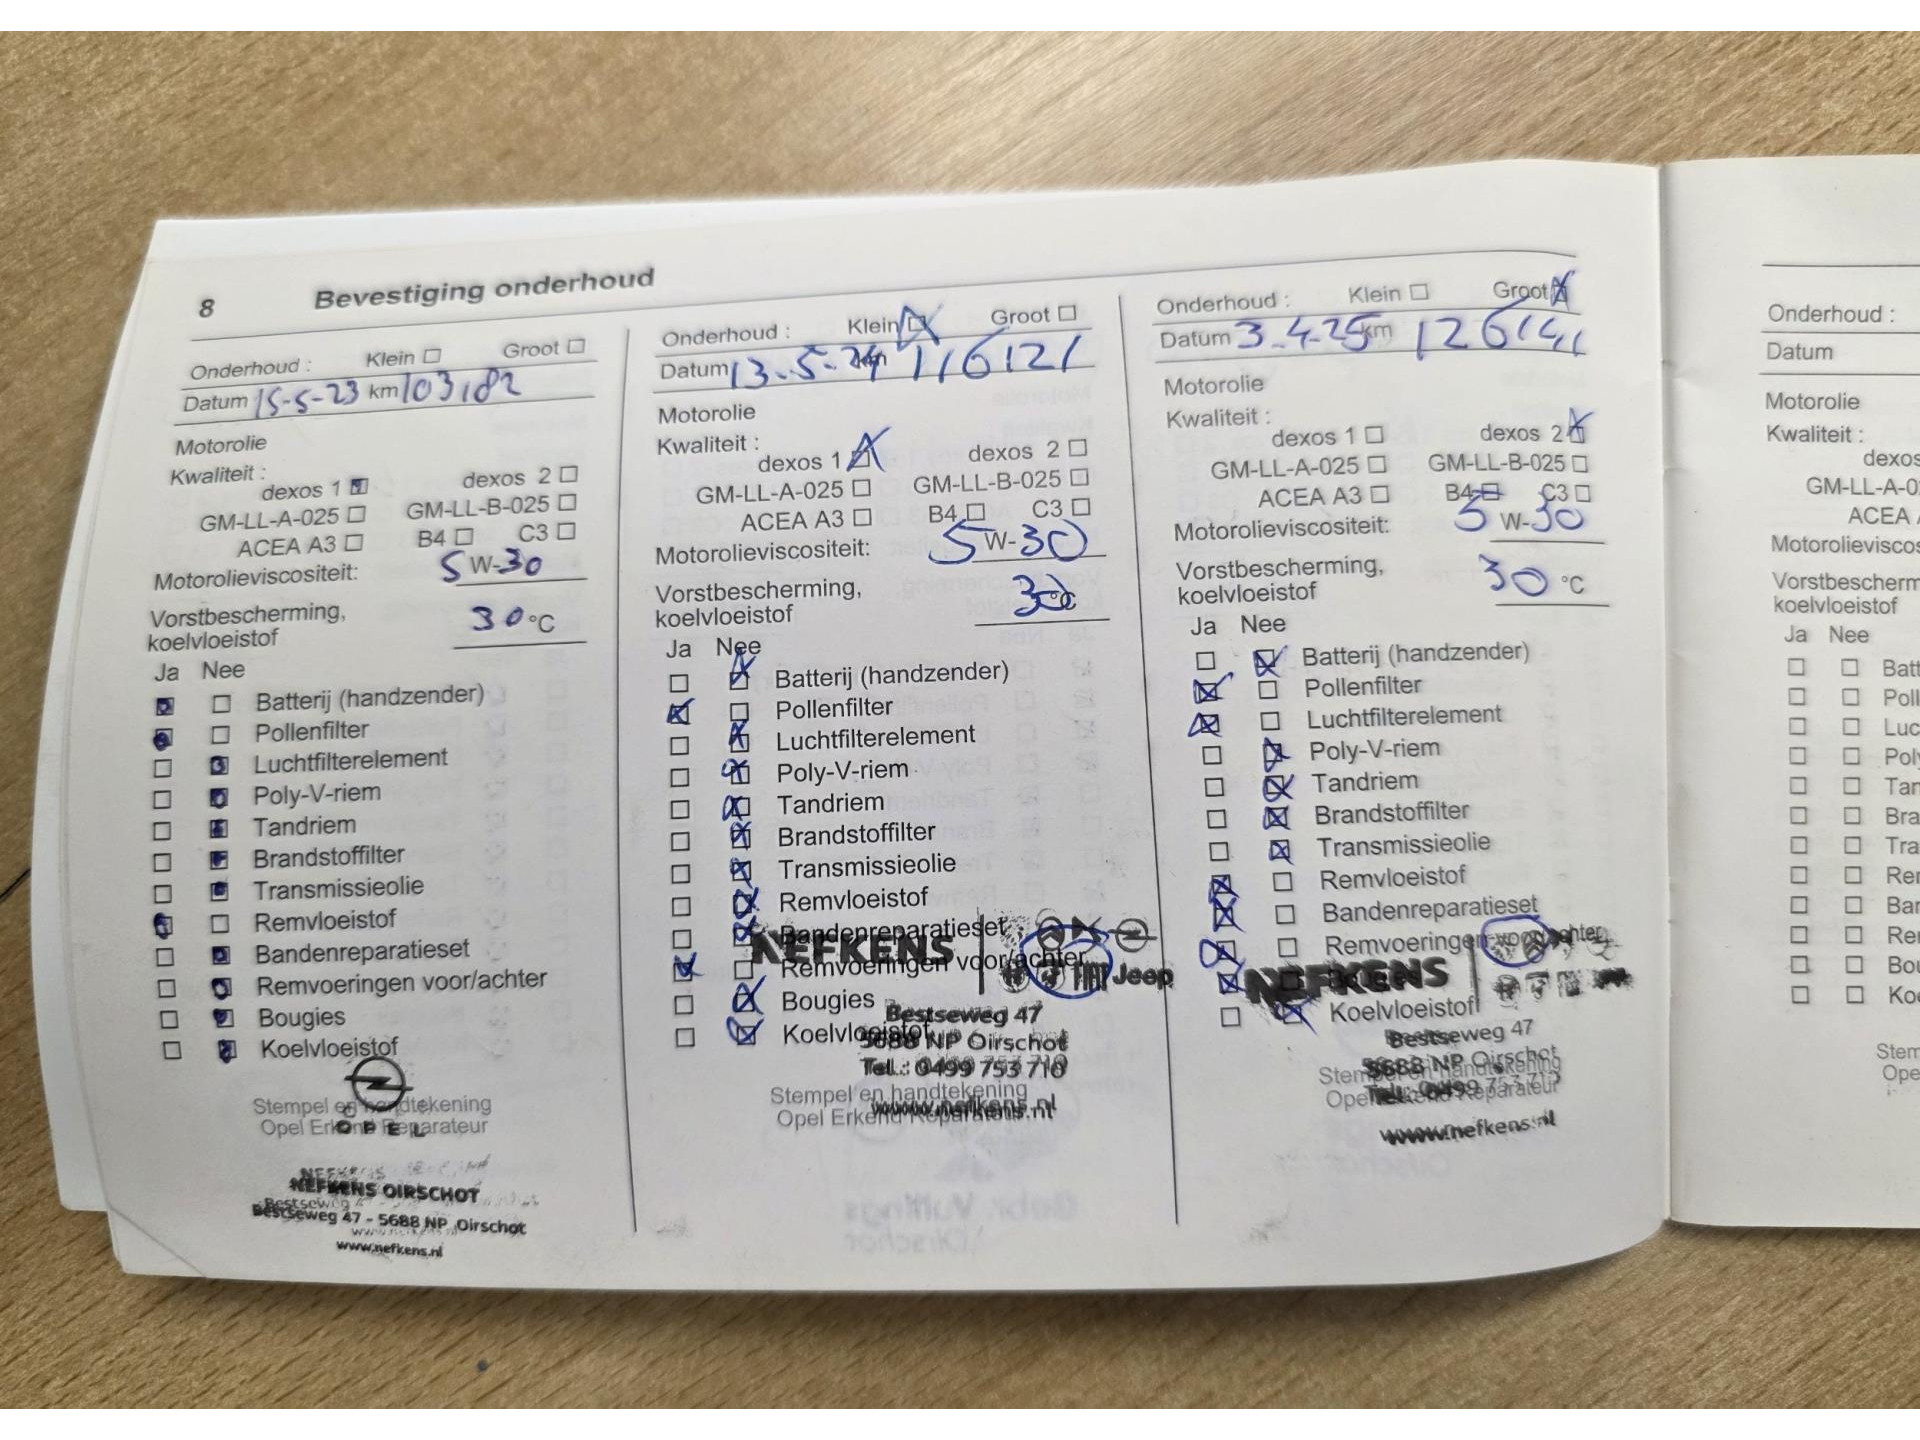 8 Bevestiging onderhoud
Onderhoud : Klein Groot
Datum 15-5-23 km 103182
Motorolie
Kwaliteit :
dexos 1 dexos 2
GM-LL-A-025 GM-LL-B-025
ACEA A3 B4 C3
Motorolieviscositeit: 5 W-30
Vorstbescherming,
koelvloeistof 30 °C
Ja Nee
Batterij (handzender)
Pollenfilter
Luchtfilterelement
Poly-V-riem
Tandriem
Brandstoffilter
Transmissieolie
Remvloeistof
Bandenreparatieset
Remvoeringen voor/achter
Bougies
Koelvloeistof
Stempel en handtekening
Opel Erkend Reparateur
OPEL
NEFKENS OIRSCHOT
Bestseweg 47 - 5688 NP Oirschot
www.nefkens.nl
Onderhoud : Klein Groot
Datum 13-5-24 km 116121
Motorolie
Kwaliteit :
dexos 1 dexos 2
GM-LL-A-025 GM-LL-B-025
ACEA A3 B4 C3
Motorolieviscositeit: 5 W-30
Vorstbescherming,
koelvloeistof 30 °C
Ja Nee
Batterij (handzender)
Pollenfilter
Luchtfilterelement
Poly-V-riem
Tandriem
Brandstoffilter
Transmissieolie
Remvloeistof
Bandenreparatieset
NEFKENS
Remvoeringen voor/achter
Jeep
Bougies
Bestseweg 47
Koelvloeistof
5688 NP Oirschot
Tel.: 0499 753 710
Stempel en handtekening
Opel Erkend Reparateur
www.nefkens.nl
Onderhoud : Klein Groot
Datum 3-4-25 km 126141
Motorolie
Kwaliteit :
dexos 1 dexos 2
GM-LL-A-025 GM-LL-B-025
ACEA A3 B4 C3
Motorolieviscositeit: 5 W-30
Vorstbescherming,
koelvloeistof 30 °C
Ja Nee
Batterij (handzender)
Pollenfilter
Luchtfilterelement
Poly-V-riem
Tandriem
Brandstoffilter
Transmissieolie
Remvloeistof
Bandenreparatieset
Remvoeringen voor/achter
NEFKENS
Koelvloeistof
Bestseweg 47
5688 NP Oirschot
Stempel en handtekening
Opel Erkend Reparateur
www.nefkens.nl
Onderhoud :
Datum
Motorolie
Kwaliteit :
dexos
GM-LL-A-0
ACEA
Motorolieviscos
Vorstbescherm
koelvloeistof
Ja Nee
Batt
Poll
Luc
Poly
Tan
Bra
Tra
Rer
Bar
Re
Bou
Ko
Stem
Ope